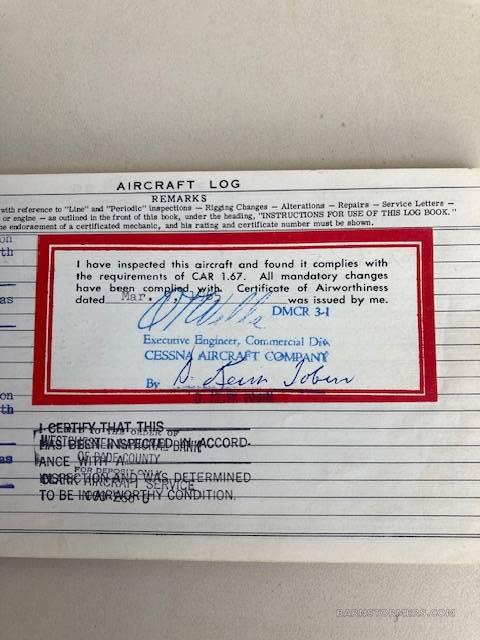 AIRCRAFT LOG
REMARKS
with reference to "Line" and "Periodic" inspections — Rigging Changes — Alterations — Repairs — Service Letters —
or engine — as outlined in the front of this book, under the heading, "INSTRUCTIONS FOR USE OF THIS LOG BOOK."
e endorsement of a certificated mechanic, and his rating and certificate number must be shown.
on
th
I have inspected this aircraft and found it complies with
the requirements of CAR 1.67. All mandatory changes
have been complied with. Certificate of Airworthiness
dated Mar. was issued by me.
as
DMCR 3-1
Executive Engineer, Commercial Div.
CESSNA AIRCRAFT COMPANY
By D. Keith Tobin
on
th
I CERTIFY THAT THIS
TO THE ORDER OF
HAS BEEN INSPECTED IN ACCORD-
BANK
ANCE WITH A
OF DADE COUNTY
as
FOR DEPOSIT ONLY
INSPECTION AND WAS DETERMINED
AIRCRAFT SERVICE
TO BE IN AIRWORTHY CONDITION.
BARNSTORMERS.COM